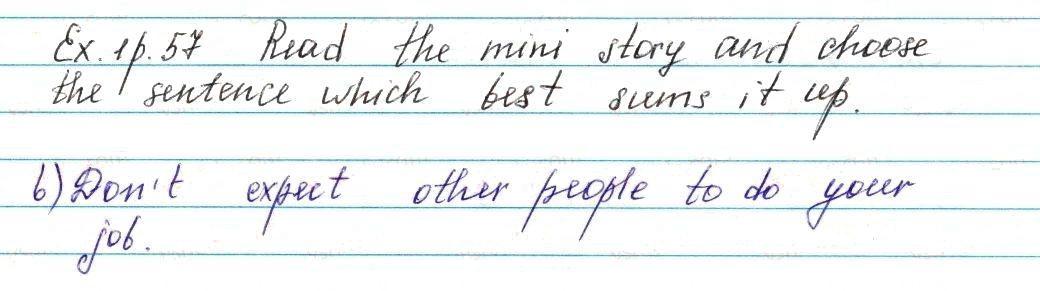 Ex. 1 p. 57 Read the mini story and choose
the sentence which best sums it up.
b) Don't expect other people to do your
job.